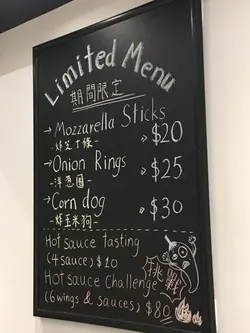 Limited Menu
期間限定
→Mozzarella Sticks
-炸芝士條- $20
→Onion Rings
-洋蔥圈- $25
→Corn dog
-炸玉米狗- $30
Hot sauce tasting
(4 sauce) $10
Hot sauce Challenge
(6 wings & sauces) $80
挑戰